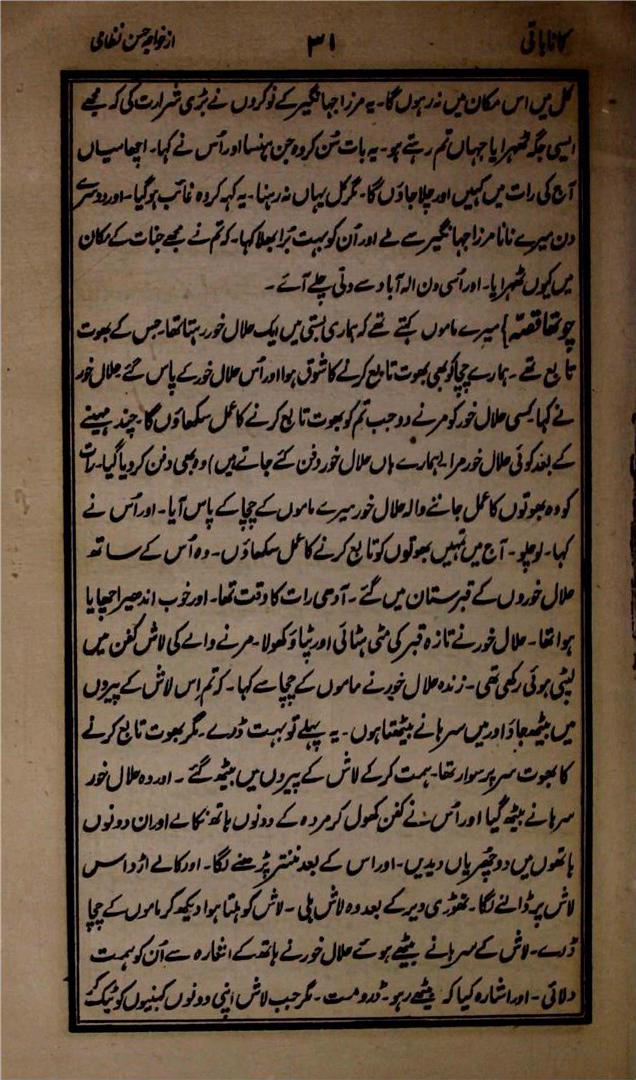 کانا باتی ۳۱ از خواجہ حسن نظامی
کل میں اس مکان میں نہ رہوں گا۔ یہ مرزا جہانگیر کے نوکروں نے بڑی شرارت کی کہ مجھے
ایسی جگہ ٹھہرایا جہاں تم رہتے ہو۔ یہ بات سُن کر وہ جن ہنسا اور اُس نے کہا۔ اچھا میاں
آج کی رات میں کہیں اور چلا جاؤں گا۔ مگر کل یہاں نہ رہنا۔ یہ کہہ کر وہ غائب ہو گیا۔ اور دوسرے
دن میرے نانا مرزا جہانگیر سے ملے اور اُن کو بہت بُرا بھلا کہا۔ کہ تم نے مجھے جنات کے مکان
میں کیوں ٹھہرایا۔ اور اُسی دن الہ آباد سے دلّی چلے آئے۔
چوتھا قصّہ} میرے ماموں کہتے تھے کہ ہماری بستی میں ایک حلال خور رہتا تھا۔ جس کے بھوت
تابع تھے۔ ہمارے چچا کو بھی بھوت تابع کرنے کا شوق ہوا اور اُس حلال خور کے پاس گئے۔ حلال خور
نے کہا۔ کسی حلال خور کو مرنے دو جب تم کو بھوت تابع کرنے کا عمل سکھاؤں گا۔ چند مہینے
کے بعد کوئی حلال خور مرا (ہمارے ہاں حلال خور دفن کئے جاتے ہیں) وہ بھی دفن کر دیا گیا۔ رات
کو وہ بھوتوں کا عمل جاننے والہ حلال خور میرے ماموں کے چچا کے پاس آیا۔ اور اُس نے
کہا۔ لو چلو۔ آج میں تمہیں بھوتوں کو تابع کرنے کا عمل سکھاؤں۔ وہ اُس کے ساتھ
حلال خوروں کے قبرستان میں گئے۔ آدھی رات کا وقت تھا۔ اور خوب اندھیرا چھایا
ہوا تھا۔ حلال خور نے تازہ قبر کی مٹی ہٹائی اور پٹاؤ کھولا۔ مرنے والے کی لاش کفن میں
لپٹی ہوئی رکھی تھی۔ زندہ حلال خور نے ماموں کے چچا سے کہا۔ کہ تم اِس لاش کے پیروں
میں بیٹھ جاؤ اور میں سرہانے بیٹھتا ہوں۔ یہ پہلے تو بہت ڈرے۔ مگر بھوت تابع کرنے
کا بھوت سر پر سوار تھا۔ ہمت کر کے لاش کے پیروں میں بیٹھ گئے۔ اور وہ حلال خور
سرہانے بیٹھ گیا اور اُس نے کفن کھول کر مردہ کے دونوں ہاتھ نکالے اور ان دونوں
ہاتھوں میں دو چھریاں دیدیں۔ اور اس کے بعد منتر پڑھنے لگا۔ اور کالے اڑد اس
لاش پر ڈالنے لگا۔ تھوڑی دیر کے بعد وہ لاش ہلی۔ لاش کو ہلتا ہوا دیکھ کر ماموں کے چچا
ڈرے۔ لاش کے سرہانے بیٹھے ہوئے حلال خور نے ہاتھ کے اشارہ سے اُن کو ہمت
دلائی۔ اور اشارہ کیا کہ بیٹھے رہو۔ ڈرو مت۔ مگر جب لاش اپنی دونوں کہنیوں کو ٹیک کر